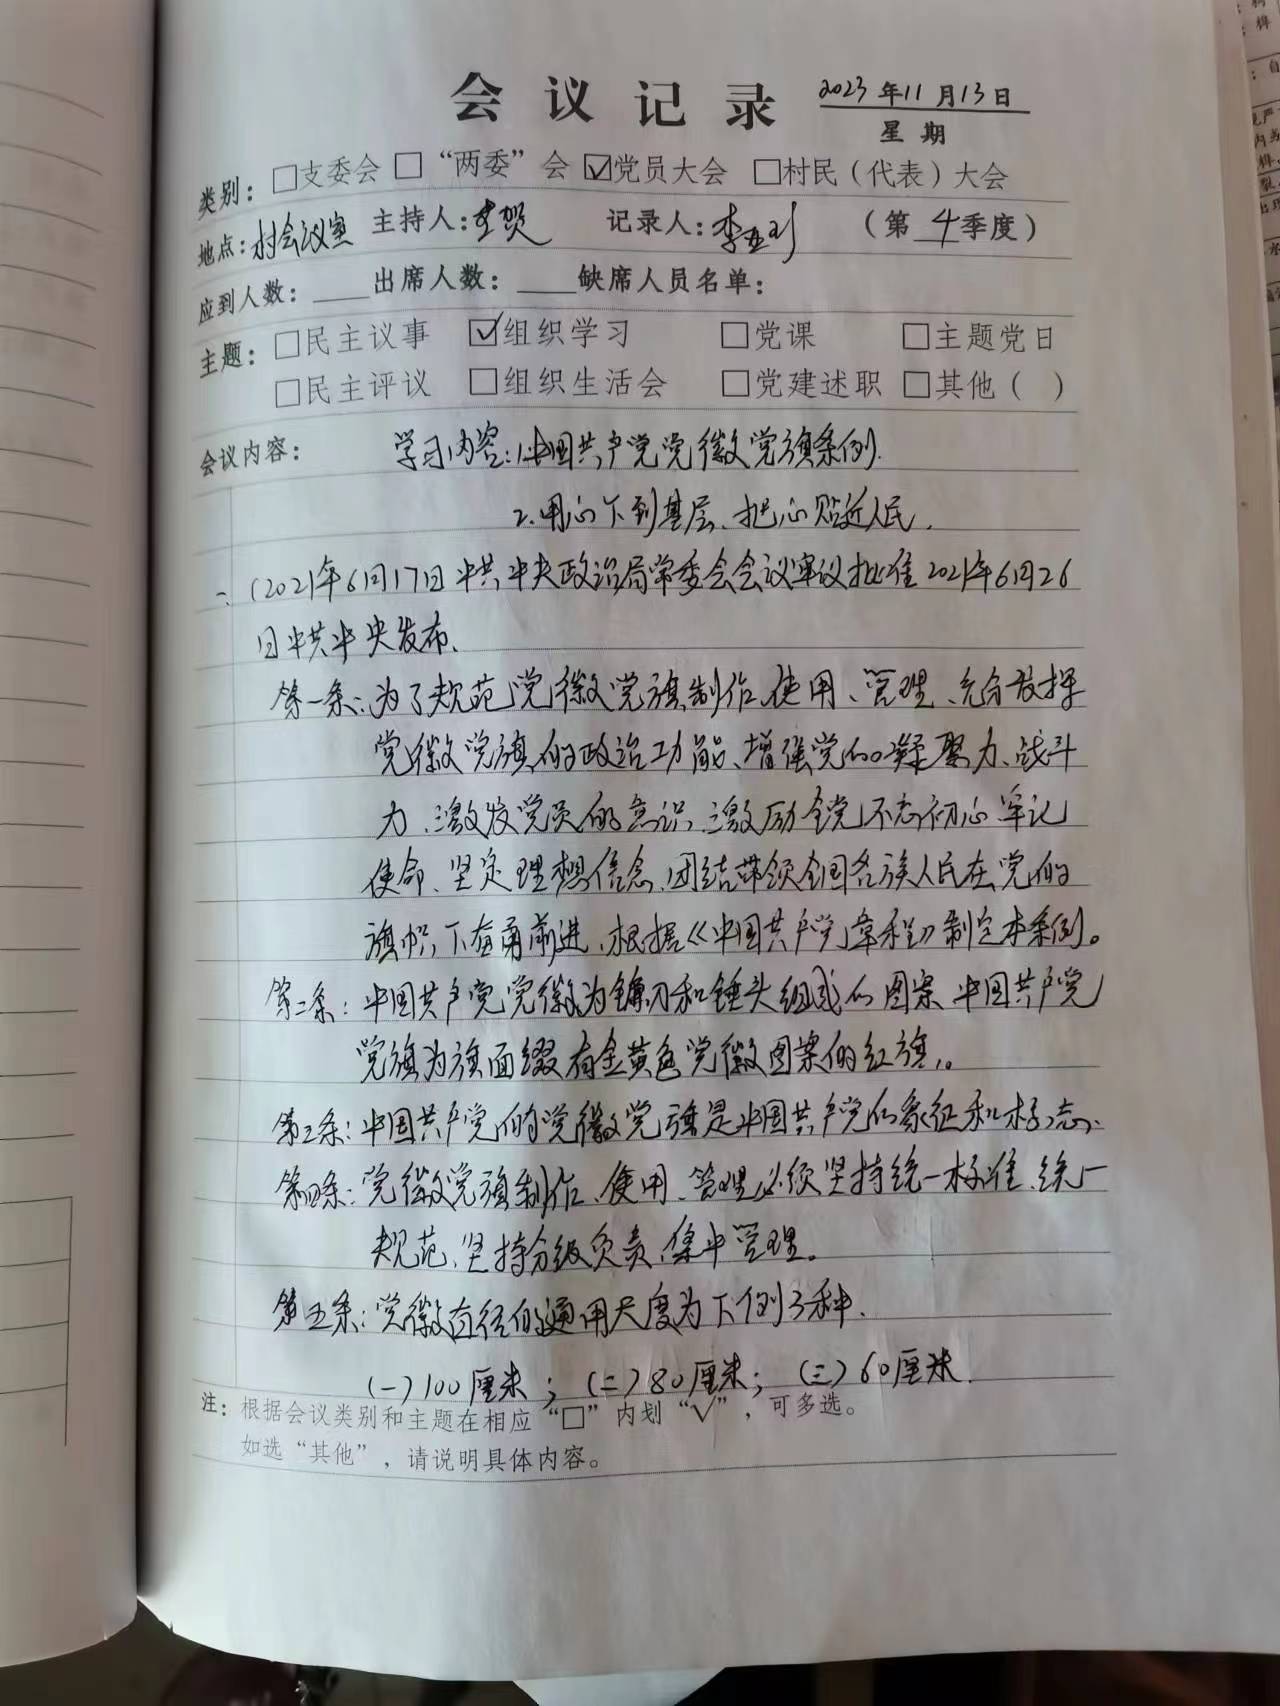 会议记录 2023年11月13日
星期
类别：□支委会 □“两委”会 ☑党员大会 □村民（代表）大会
地点：村会议室 主持人：贺 记录人：李 （第4季度）
应到人数：____出席人数：____缺席人员名单：
主题：□民主议事 ☑组织学习 □党课 □主题党日
□民主评议 □组织生活会 □党建述职 □其他（ ）
会议内容： 学习内容：1.中国共产党党徽党旗条例.
2.用心下到基层、把心贴近人民.
一、(2021年6月17日中共中央政治局常委会会议审议批准2021年6月26
日中共中央发布、
第一条：为了规范党徽党旗制作、使用、管理、充分发挥
党徽党旗的政治功能、增强党的凝聚力、战斗
力、激发党员的意识、激励全党不忘初心、牢记
使命、坚定理想信念、团结带领全国各族人民在党的
旗帜下奋勇前进、根据《中国共产党章程》制定本条例。
第二条：中国共产党党徽为镰刀和锤头组成的图案、中国共产党
党旗为旗面缀有金黄色党徽图案的红旗。
第三条：中国共产党的党徽党旗是中国共产党的象征和标志、
第四条：党徽党旗制作、使用、管理必须坚持统一标准、统一
规范、坚持分级负责、集中管理。
第五条：党徽直径的通用尺度为下例3种.
(一)100厘米；(二)80厘米；(三)60厘米.
注：根据会议类别和主题在相应“□”内划“√”，可多选。
如选“其他”，请说明具体内容。